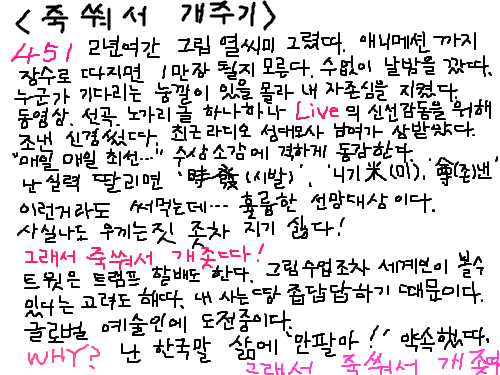 <죽 쒀서 개주기>
451 2년여간 그림 열씨미 그렸따. 애니메션 까지
장수로 따지면 1만장 될지 모른다. 수없이 날밤을 깠다.
누군가 기다리는 눈깔이 있을 몰라 내 자존심을 지켰다.
동영상. 선곡. 노가리 글 하나하나 Live의 신선감동을 위해
조낸 신경썼다. 최근 라디오 성대모사 남여가 상받았다.
"매일 매일 최선…" 수상소감에 격하게 동감한다.
난 실력 딸리면 '時發(시발)', '니기米(미), 尊(존)낸'
이런거라도 써먹는데… 훌륭한 선망대상이다.
사실나도 우끼는짓 조차 지기 싫다!
그래서 죽쒀서 개줏따!
트윗은 트럼프 할배도 한다. 그림수업조차 세계인이 볼수
있다는 고려도 해따. 내 사는땅 좁답답하기 때문이다.
글로벌 예술인에 도전중이다.
WHY? 난 한국말 삶에 '안팔아!' 약속했따.
그래서 죽쒀서 개줫